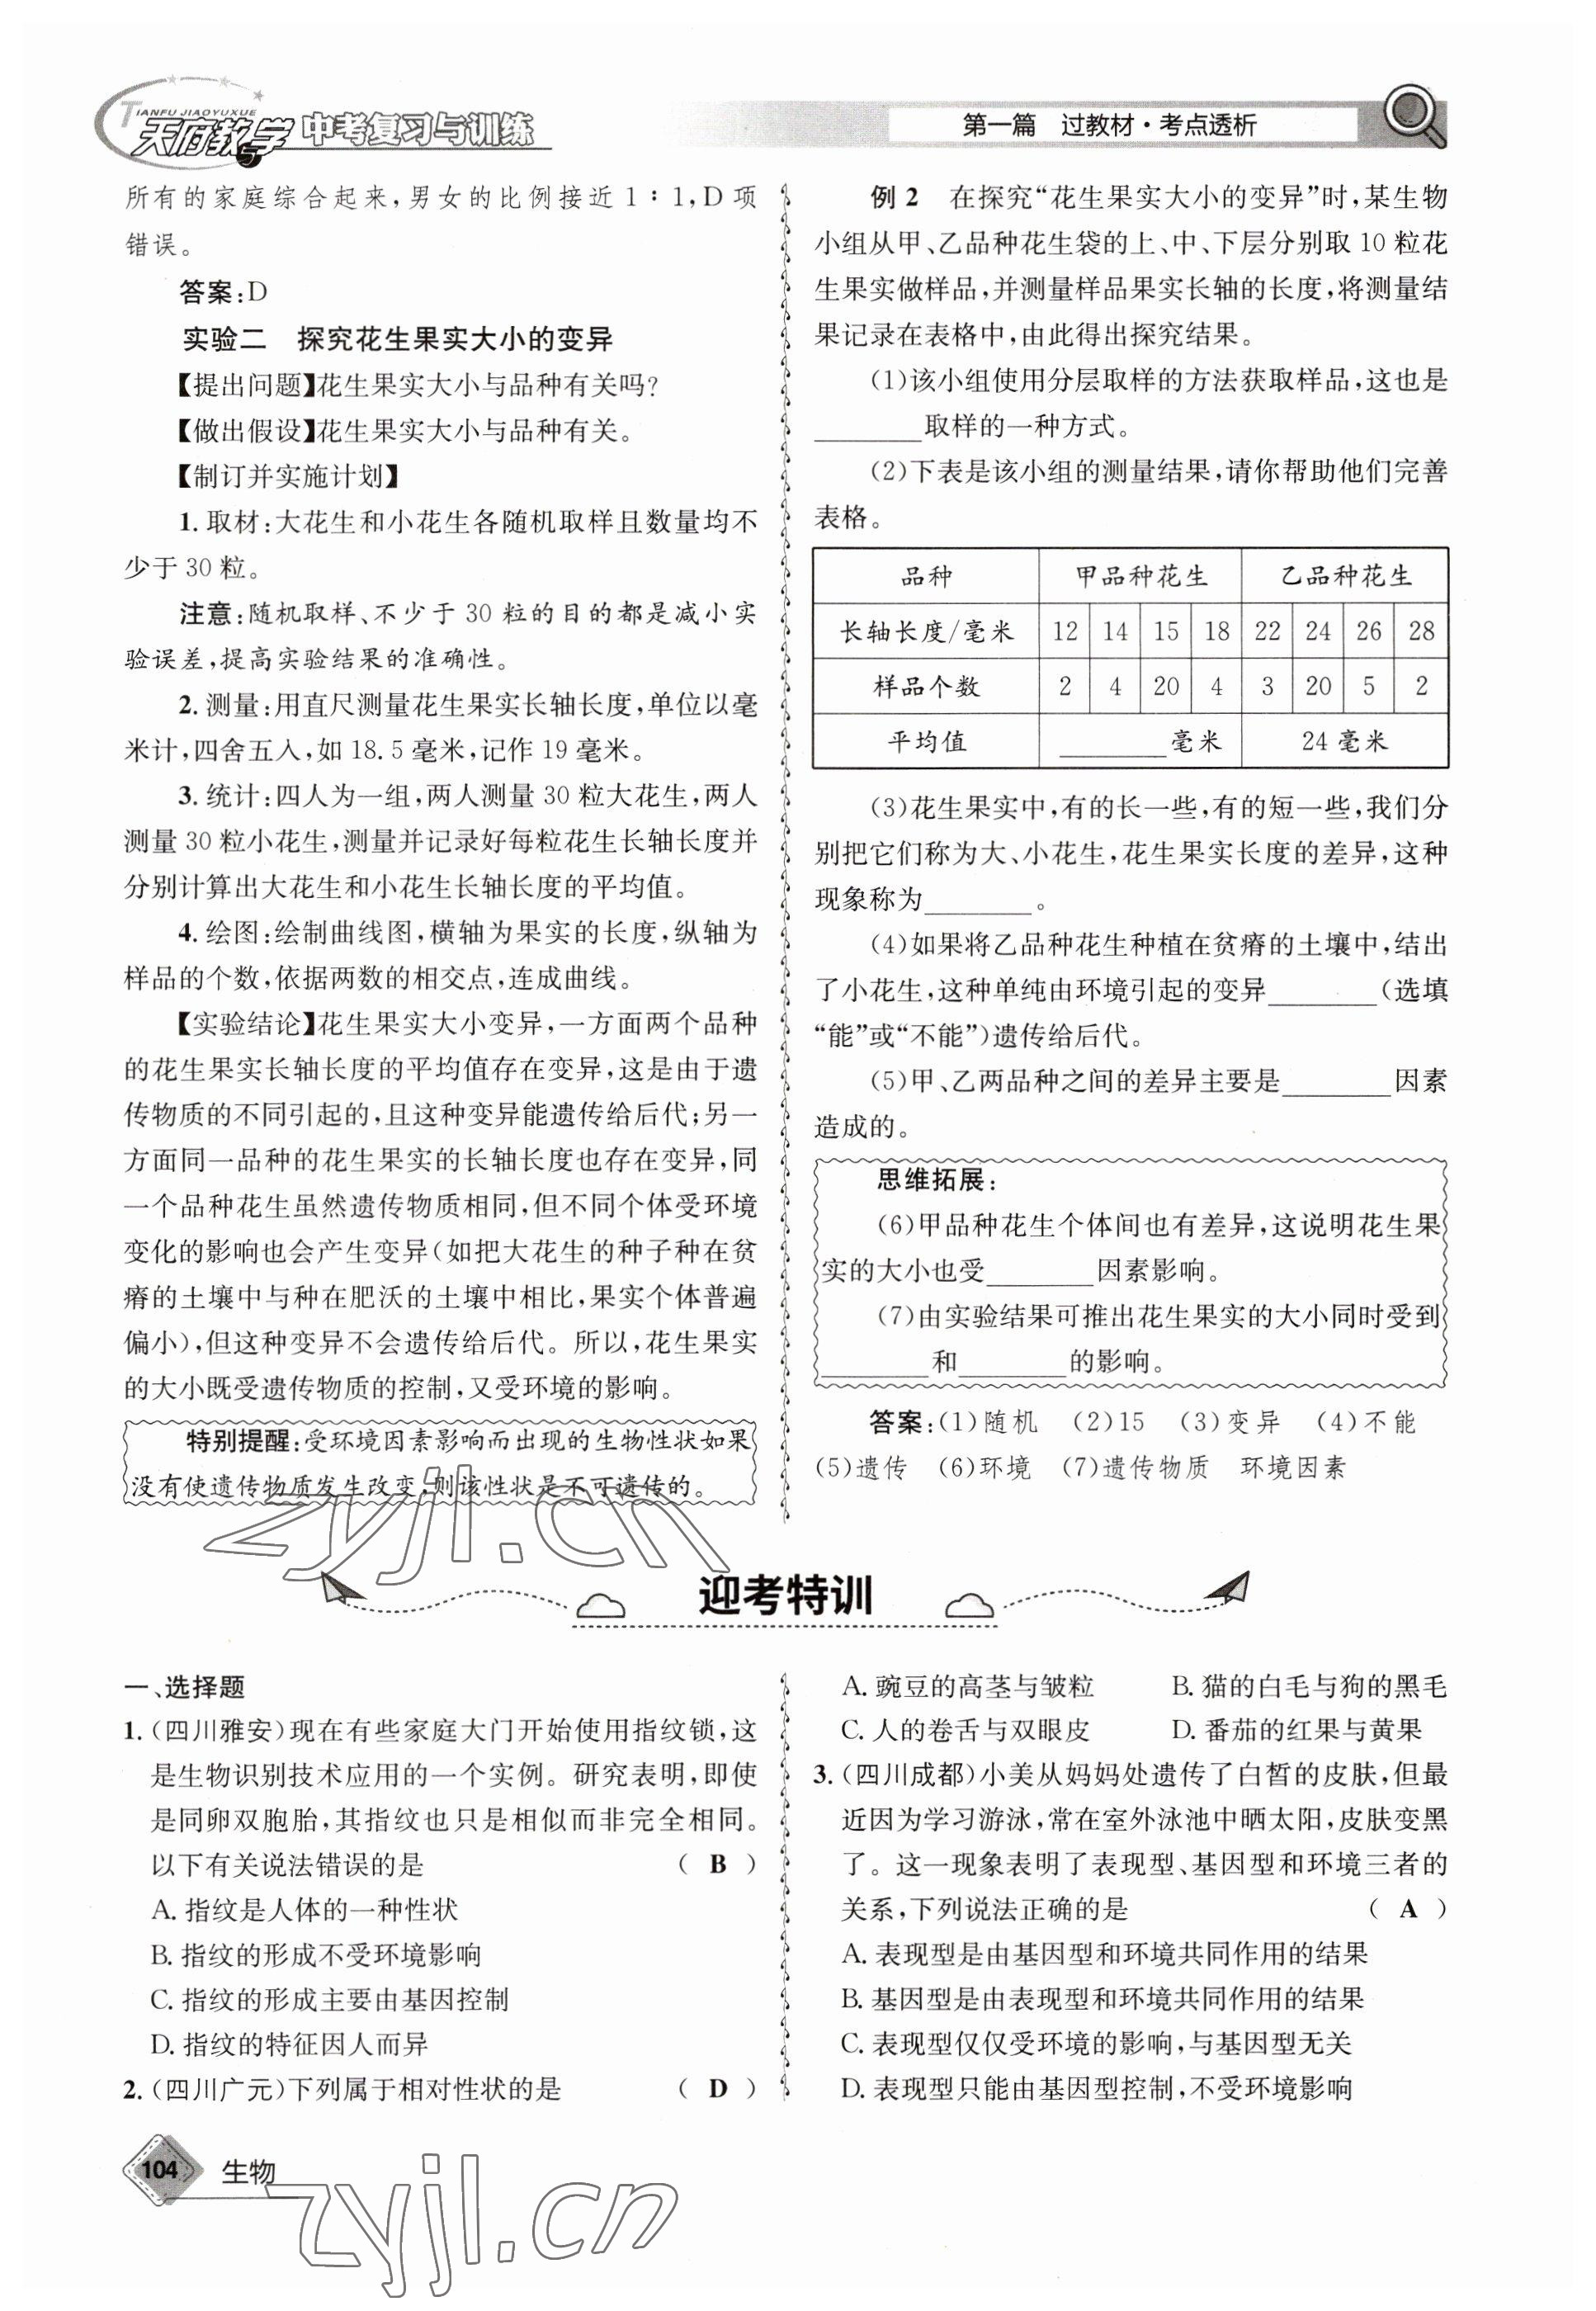 TIANFU JIAOYUXUE
天府教与学 中考复习与训练
第一篇 过教材·考点透析
所有的家庭综合起来,男女的比例接近1∶1,D项
错误。
答案:D
实验二 探究花生果实大小的变异
【提出问题】花生果实大小与品种有关吗?
【做出假设】花生果实大小与品种有关。
【制订并实施计划】
1.取材:大花生和小花生各随机取样且数量均不
少于30粒。
注意:随机取样、不少于30粒的目的都是减小实
验误差,提高实验结果的准确性。
2.测量:用直尺测量花生果实长轴长度,单位以毫
米计,四舍五入,如18.5毫米,记作19毫米。
3.统计:四人为一组,两人测量30粒大花生,两人
测量30粒小花生,测量并记录好每粒花生长轴长度并
分别计算出大花生和小花生长轴长度的平均值。
4.绘图:绘制曲线图,横轴为果实的长度,纵轴为
样品的个数,依据两数的相交点,连成曲线。
【实验结论】花生果实大小变异,一方面两个品种
的花生果实长轴长度的平均值存在变异,这是由于遗
传物质的不同引起的,且这种变异能遗传给后代;另一
方面同一品种的花生果实的长轴长度也存在变异,同
一个品种花生虽然遗传物质相同,但不同个体受环境
变化的影响也会产生变异(如把大花生的种子种在贫
瘠的土壤中与种在肥沃的土壤中相比,果实个体普遍
偏小),但这种变异不会遗传给后代。所以,花生果实
的大小既受遗传物质的控制,又受环境的影响。
特别提醒:受环境因素影响而出现的生物性状如果
没有使遗传物质发生改变,则该性状是不可遗传的。
例2 在探究“花生果实大小的变异”时,某生物
小组从甲、乙品种花生袋的上、中、下层分别取10粒花
生果实做样品,并测量样品果实长轴的长度,将测量结
果记录在表格中,由此得出探究结果。
(1)该小组使用分层取样的方法获取样品,这也是
________取样的一种方式。
(2)下表是该小组的测量结果,请你帮助他们完善
表格。
品种 甲品种花生 乙品种花生
长轴长度/毫米 12 14 15 18 22 24 26 28
样品个数 2 4 20 4 3 20 5 2
平均值 ________毫米 24毫米
(3)花生果实中,有的长一些,有的短一些,我们分
别把它们称为大、小花生,花生果实长度的差异,这种
现象称为________。
(4)如果将乙品种花生种植在贫瘠的土壤中,结出
了小花生,这种单纯由环境引起的变异________(选填
“能”或“不能”)遗传给后代。
(5)甲、乙两品种之间的差异主要是________因素
造成的。
思维拓展:
(6)甲品种花生个体间也有差异,这说明花生果
实的大小也受________因素影响。
(7)由实验结果可推出花生果实的大小同时受到
________和________的影响。
答案:(1)随机 (2)15 (3)变异 (4)不能
(5)遗传 (6)环境 (7)遗传物质 环境因素
zyjl.cn
迎考特训
一、选择题
1.(四川雅安)现在有些家庭大门开始使用指纹锁,这
是生物识别技术应用的一个实例。研究表明,即使
是同卵双胞胎,其指纹也只是相似而非完全相同。
以下有关说法错误的是 ( B )
A.指纹是人体的一种性状
B.指纹的形成不受环境影响
C.指纹的形成主要由基因控制
D.指纹的特征因人而异
2.(四川广元)下列属于相对性状的是 ( D )
A.豌豆的高茎与皱粒 B.猫的白毛与狗的黑毛
C.人的卷舌与双眼皮 D.番茄的红果与黄果
3.(四川成都)小美从妈妈处遗传了白皙的皮肤,但最
近因为学习游泳,常在室外泳池中晒太阳,皮肤变黑
了。这一现象表明了表现型、基因型和环境三者的
关系,下列说法正确的是 ( A )
A.表现型是由基因型和环境共同作用的结果
B.基因型是由表现型和环境共同作用的结果
C.表现型仅仅受环境的影响,与基因型无关
D.表现型只能由基因型控制,不受环境影响
104 生物
zyjl.cn